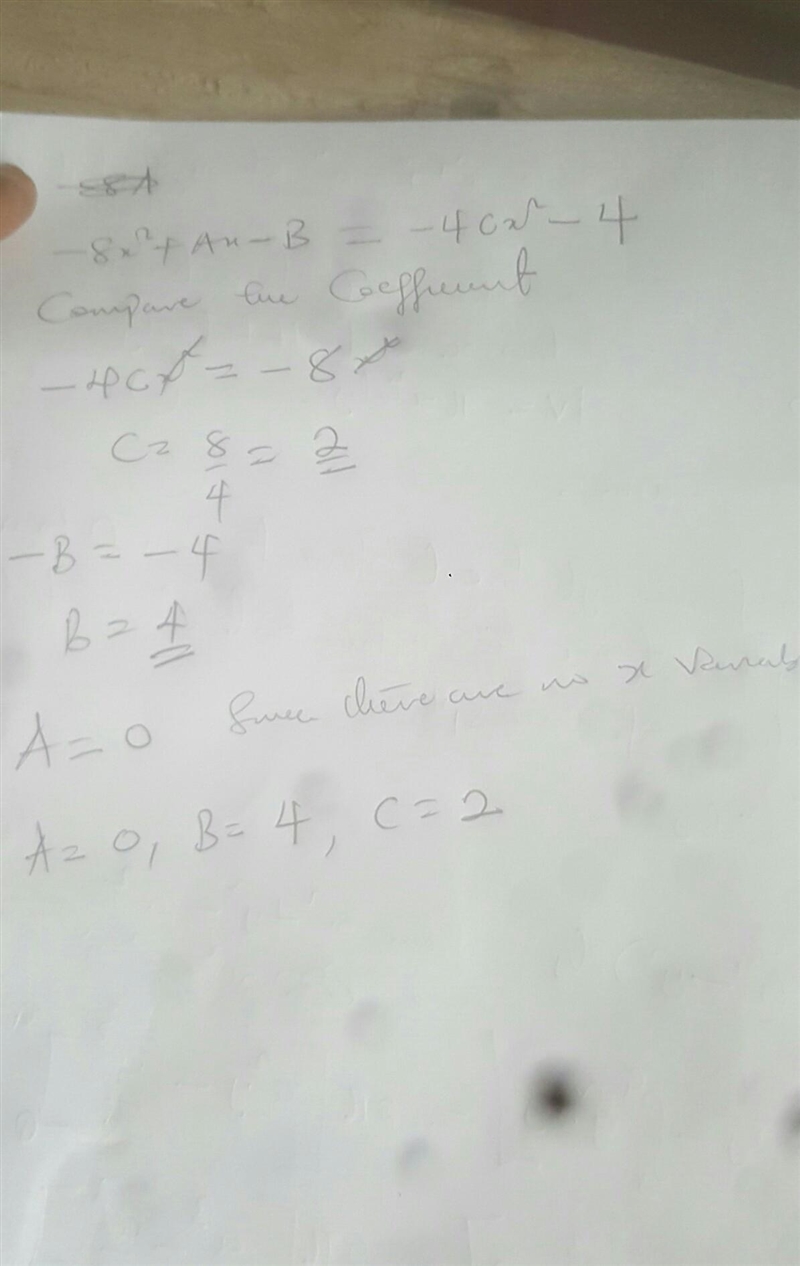 -8x² + Ax - B = -4Cx² - 4
Compare the Coefficient
-4Cx² = -8x²
C = 8/4 = 2
-B = -4
B = 4
A = 0 Since there are no x
A = 0, B = 4, C = 2